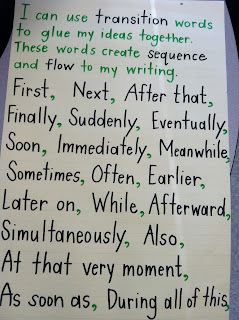 I can use transition words
to glue my ideas together.
These words create sequence
and flow to my writing.
First, Next, After that,
Finally, Suddenly, Eventually,
Soon, Immediately, Meanwhile,
Sometimes, Often, Earlier,
Later on, While, Afterward,
Simultaneously, Also,
At that very moment,
As soon as, During all of this,